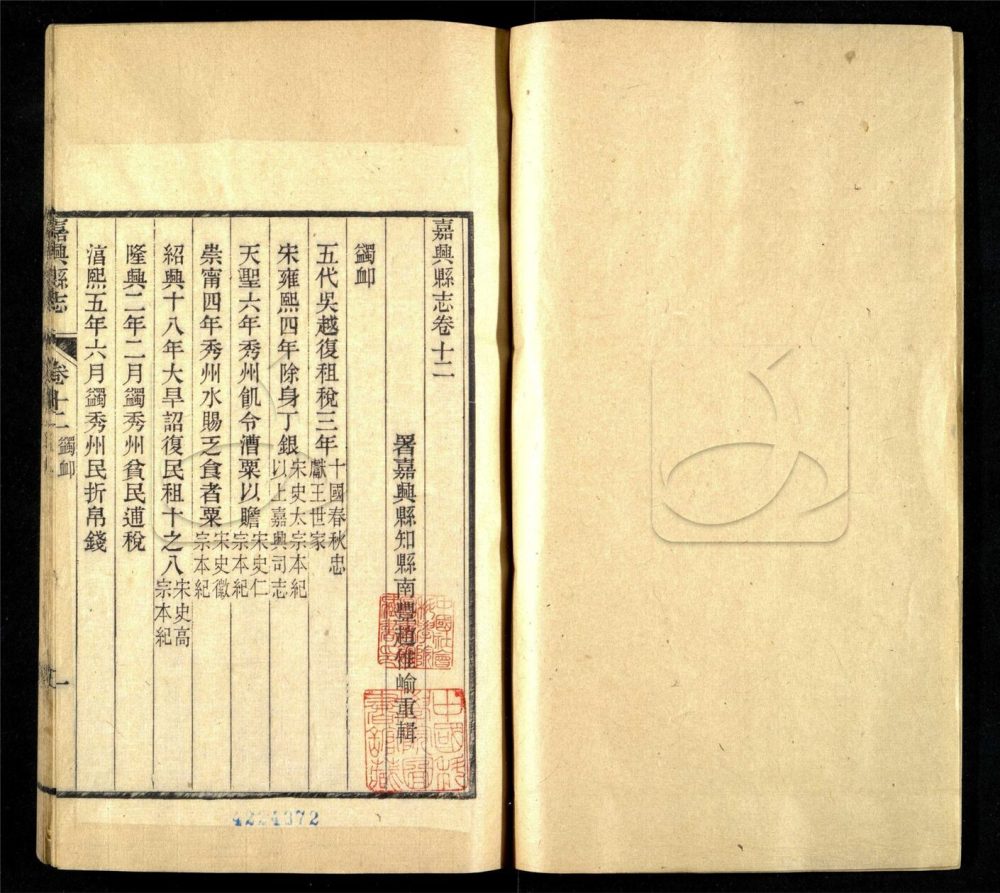 嘉興縣志卷十二
署嘉興縣知縣南豐趙惟崳重輯
蠲卹
五代吳越復租稅三年十國春秋忠獻王世家
宋雍熙四年除身丁銀宋史太宗本紀以上嘉興司志
天聖六年秀州飢令漕粟以贍宋史仁宗本紀
崇甯四年秀州水賜乏食者粟宋史徽宗本紀
紹興十八年大旱詔復民租十之八宋史高宗本紀
隆興二年二月蠲秀州貧民逋稅
湻熙五年六月蠲秀州民折帛錢
嘉興縣志
卷十二 蠲卹
一
4224372